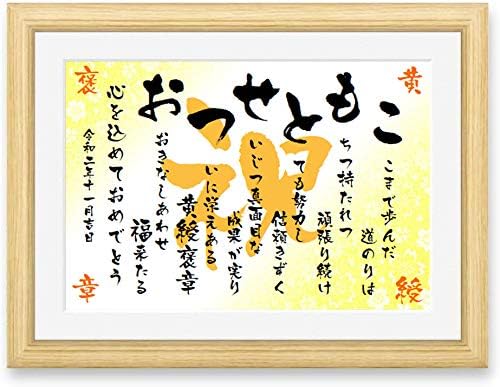 おつせともこ
祝
黄
綬
褒
章
こまで歩んだ
道のりは
ちつ持たれつ
頑張り続け
ても努力し
信頼きずく
いじつ真面目な
成果が実り
いに栄えある
黄綬褒章
おきなしあわせ
福来たる
心を込めておめでとう
令和二年十一月吉日